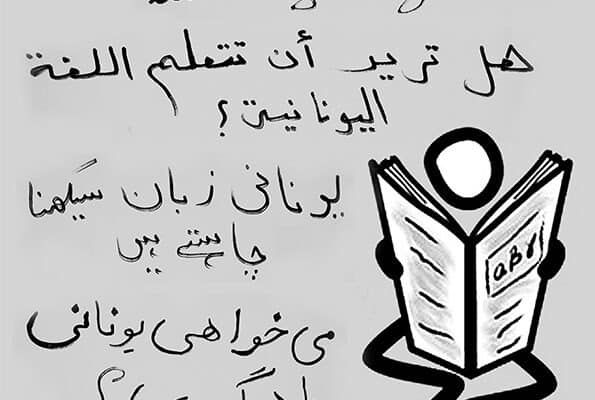 هل تريد أن تتعلم اللغة
اليونانية؟
یونانی زبان سیکھنا
چاہتے ہیں
می خواهی یونانی
αβγ